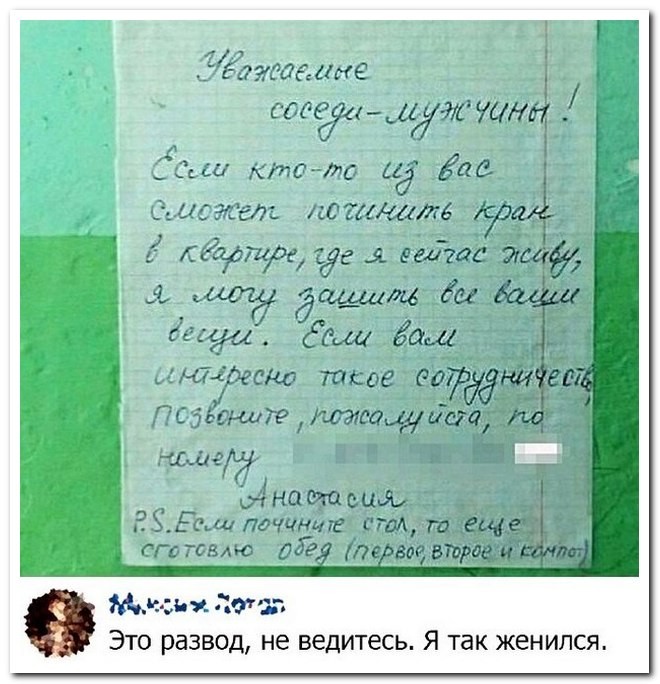 Уважаемые
соседи-мужчины!
Если кто-то из вас
сможет починить кран
в квартире, где я сейчас живу,
я могу зашить все ваши
вещи. Если вам
интересно такое сотрудничество,
позвоните, пожалуйста, по
номеру
Анастасия
P.S. Если почините стол, то еще
сготовлю обед (первое, второе и компот)
Это развод, не ведитесь. Я так женился.